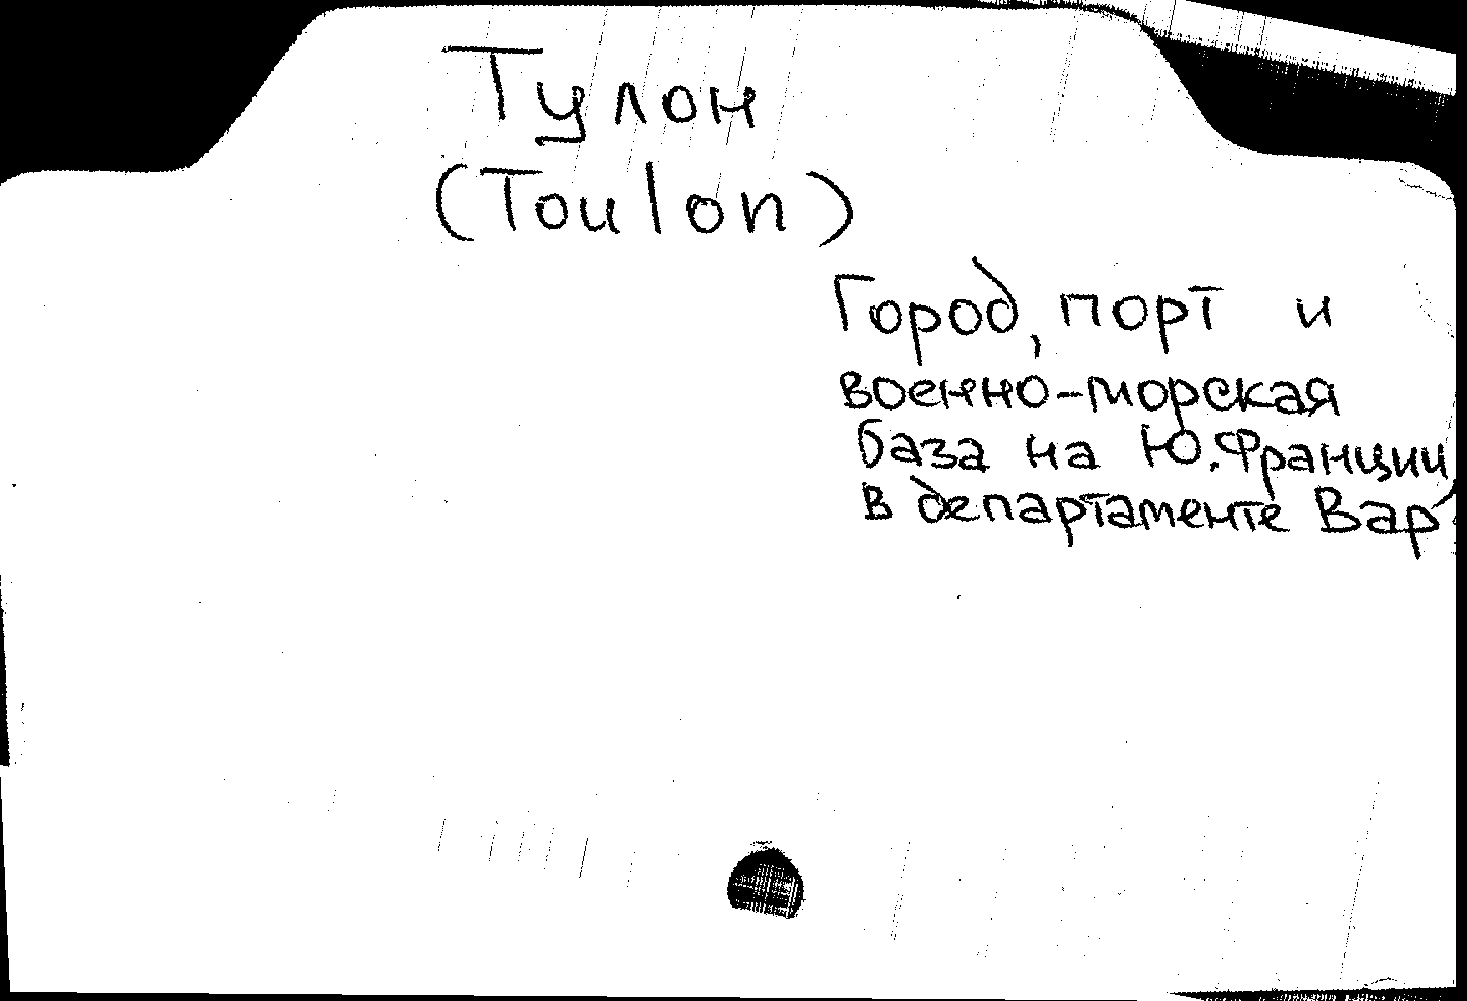 Тулон
(Toulon)
Город, порт и
военно-морская
база на Ю. Франции,
в департаменте Вар